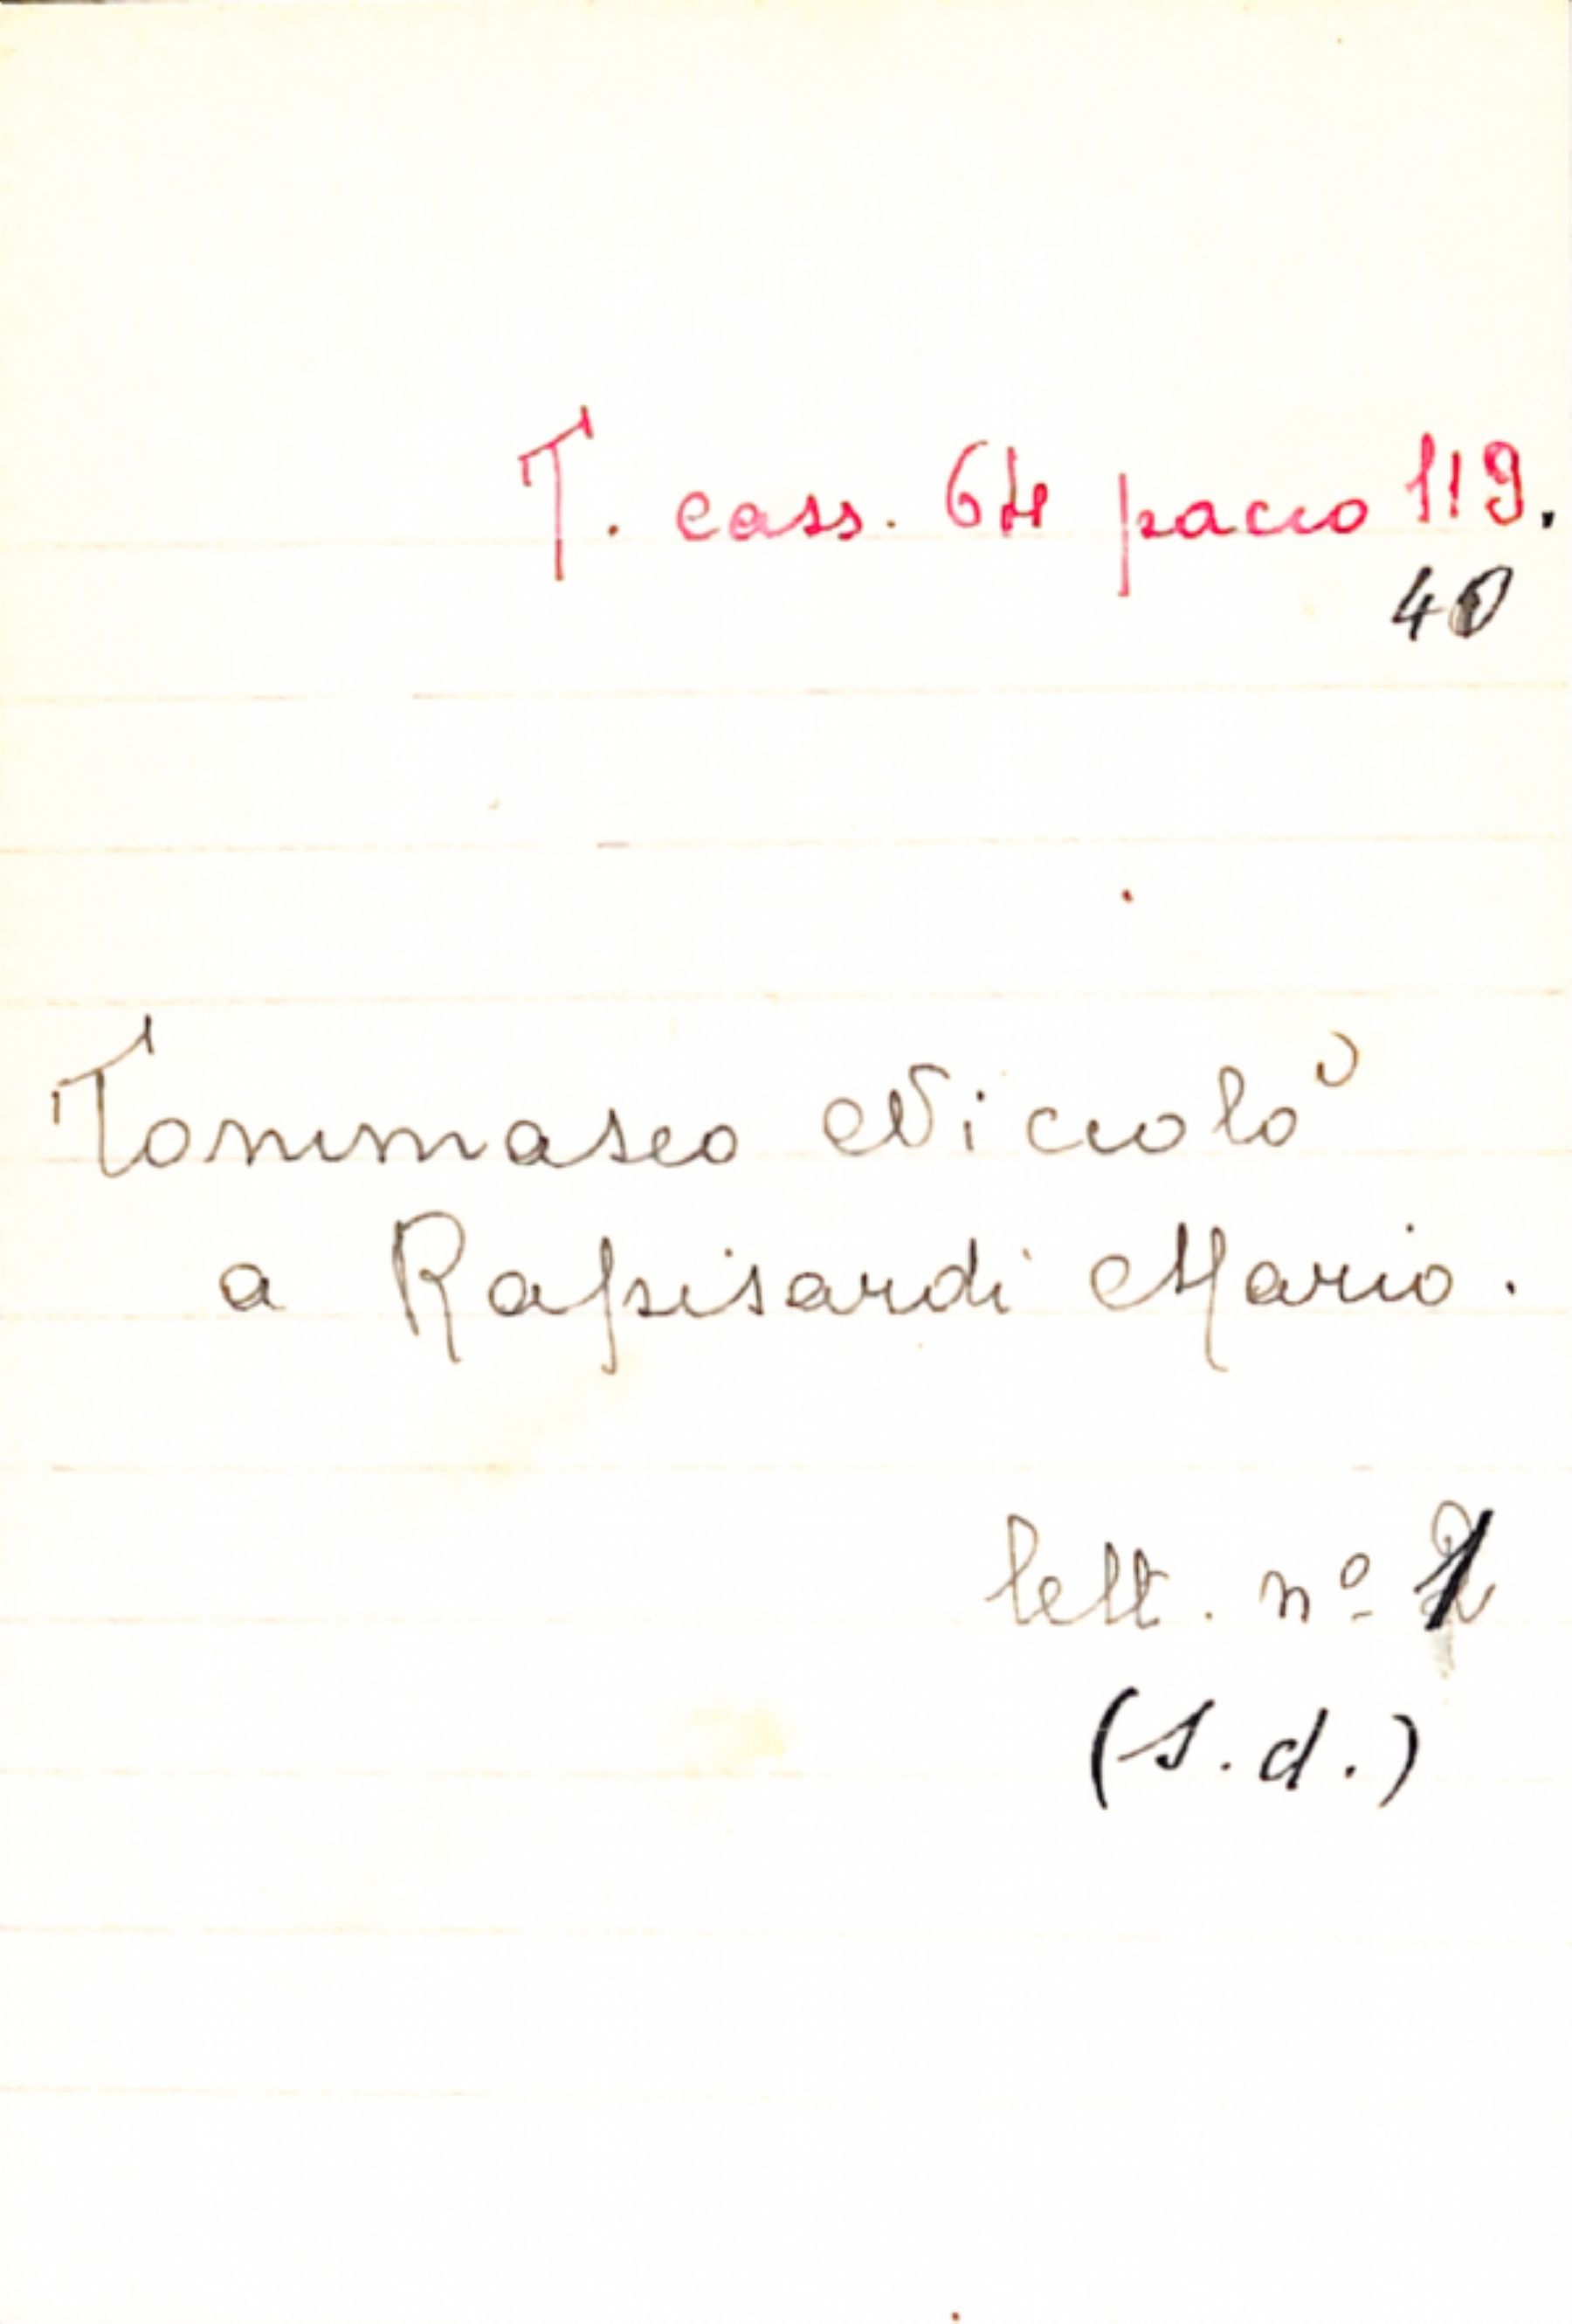 T. cass. 64 pacco 119.
40
Tommaseo Niccolò
a Rapisardi Mario.
lett. nº 1
(s.d.)